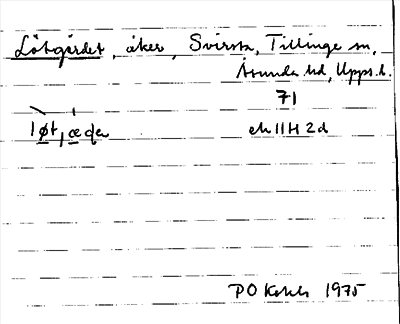 Lötgärdet, åker, Svirsta, Tillinge sn,
Åsunda hd, Upps.l.
71
løt,æɖa ek 11H 2d
PO 1975